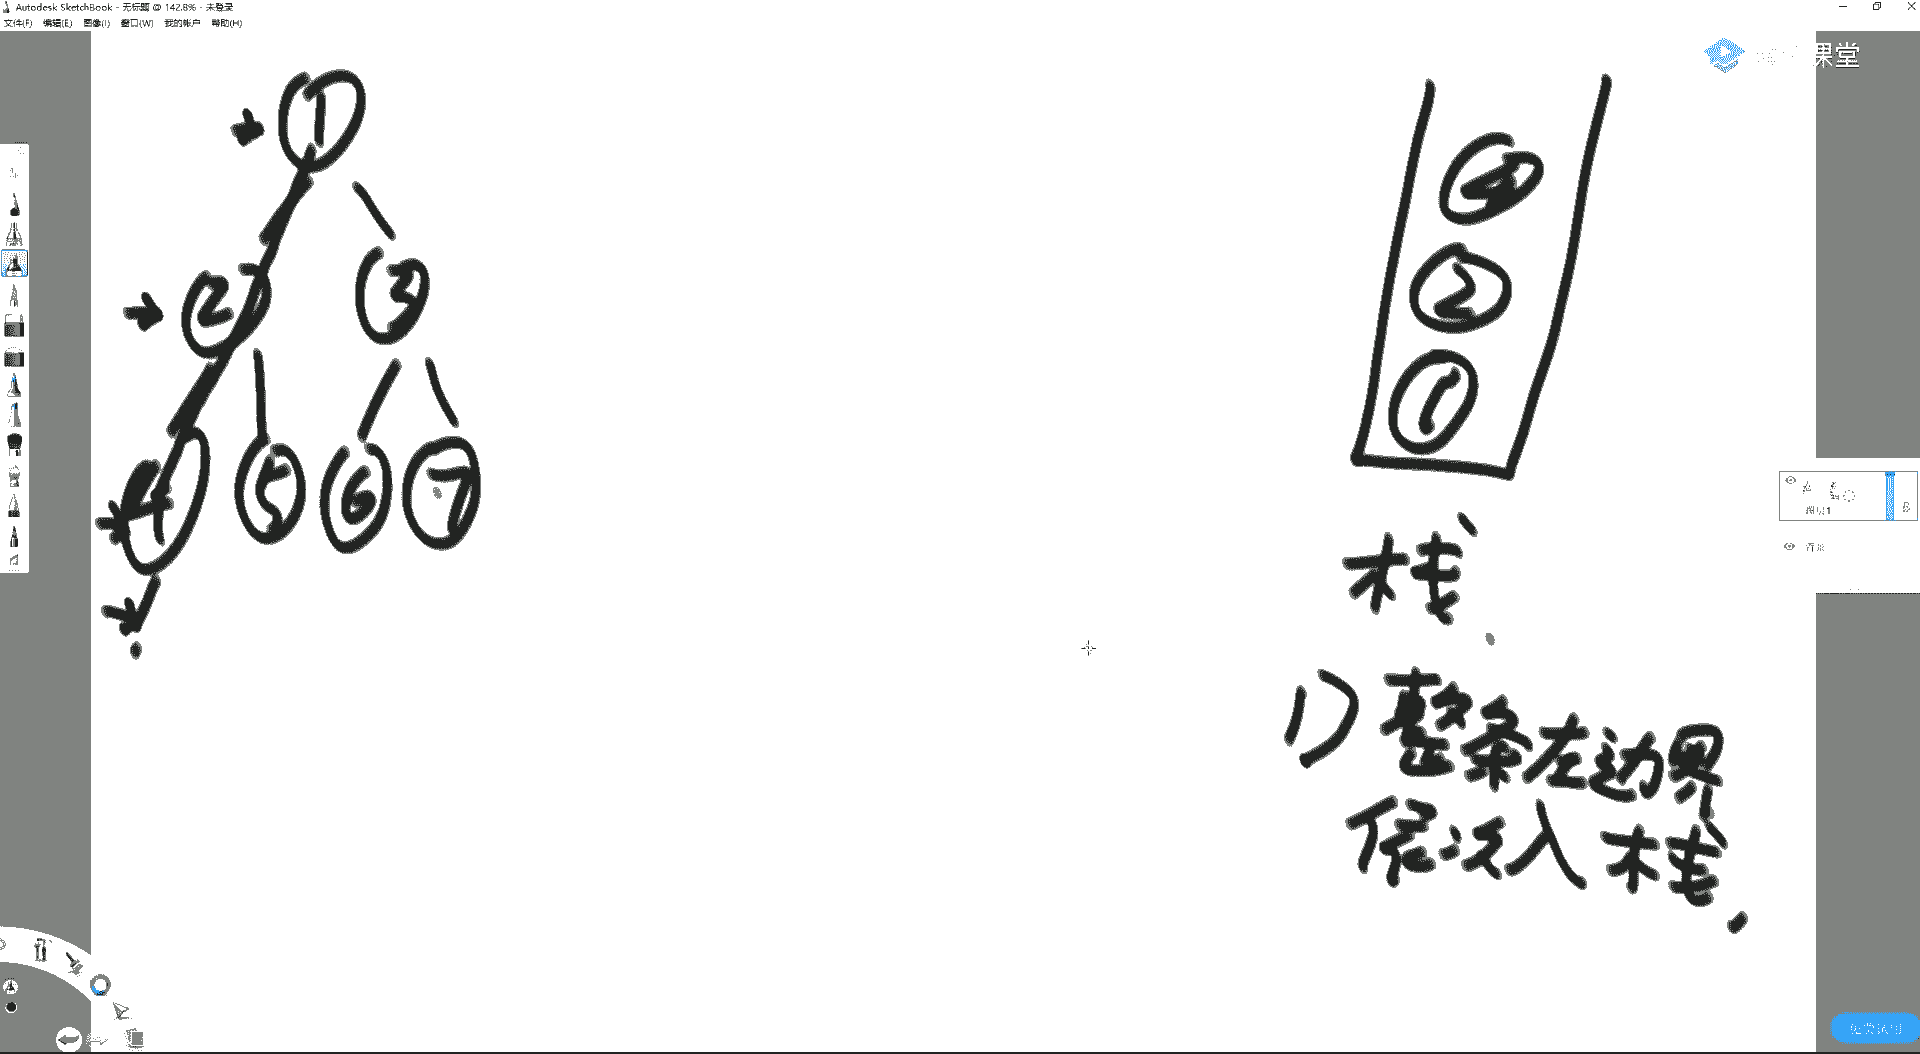 Autodesk SketchBook - 无标题 @ 142.8% - 未登录
文件(F) 编辑(E) 图像(I) 窗口(W) 我的帐户 帮助(H)
课堂
1
2 3
4 5 6 7
4
2
1
栈
1) 整条左边界
依次入栈.
图层1
背景